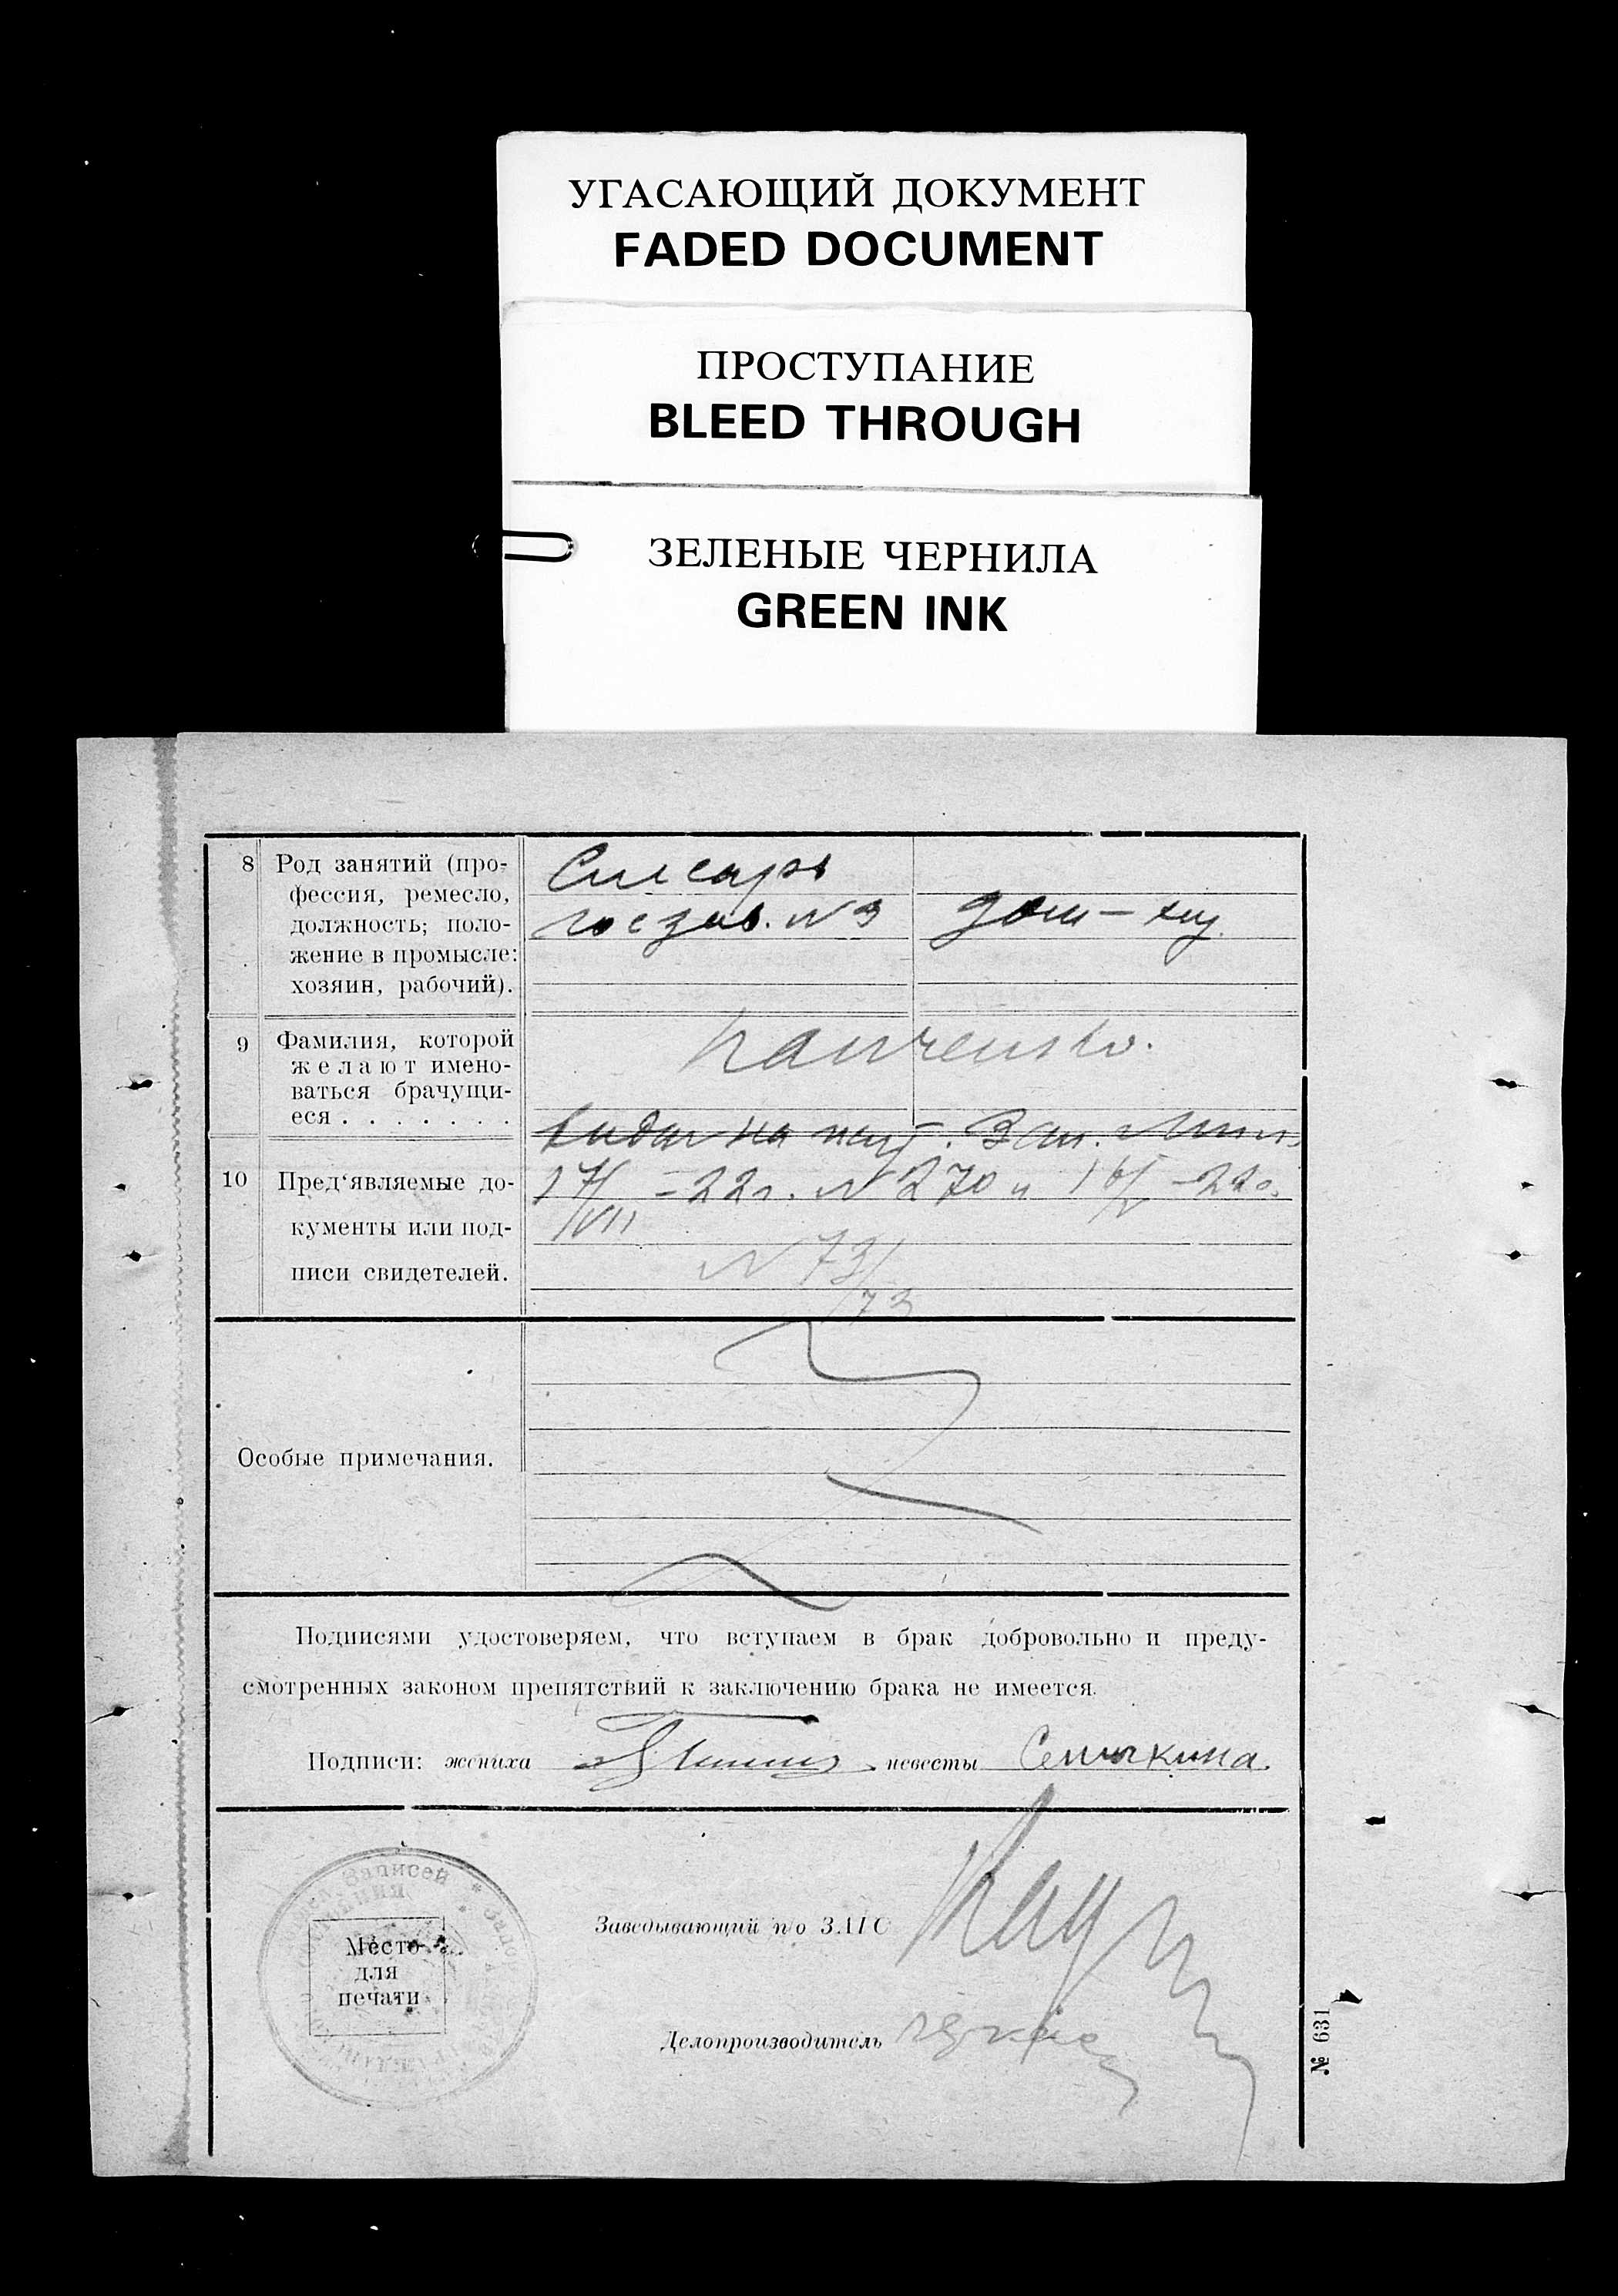 УГАСАЮЩИЙ ДОКУМЕНТ
FADED DOCUMENT
ПРОСТУПАНИЕ
BLEED THROUGH
ЗЕЛЕНЫЕ ЧЕРНИЛА
GREEN INK
8 Род занятий (про-
фессия, ремесло,
должность; поло-
жение в промысле:
хозяин, рабочий).
Слесарь
госзав. № 3
дом-хоз.
9 Фамилия, которой
желают имено-
ваться брачущи-
еся . . . . . . .
10 Пред'являемые до-
кументы или под-
писи свидетелей.
на
17/VII -22г. № 270 и 16/V -22г.
№ 73/73
Особые примечания.
Подписями удостоверяем, что вступаем в брак добровольно и преду-
смотренных законом препятствий к заключению брака не имеется.
Подписи: жениха невесты Семычкина.
Записей
Место
для
печати
Заведывающий п/о ЗАГС
Делопроизводитель
№ 631